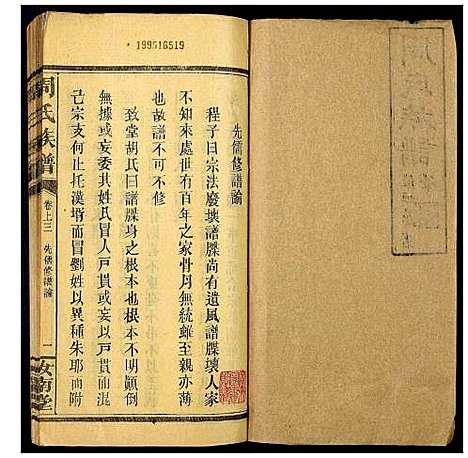 199516519
先儒修譜諭
程子曰宗法廢壞譜牒尚有遺風譜牒壞人家
不知來處世有百年之家骨月無統雖至親亦薄
也故譜不可不修
致堂胡氏曰譜牒身之根本也根本不明顛倒
無據或妄委其姓氏冒人戸貫或妄貫而混
己宗支何止托漢壻而冒劉姓以異種朱耶而附
周氏族譜
卷上三
先儒修譜諭
一
汝南堂